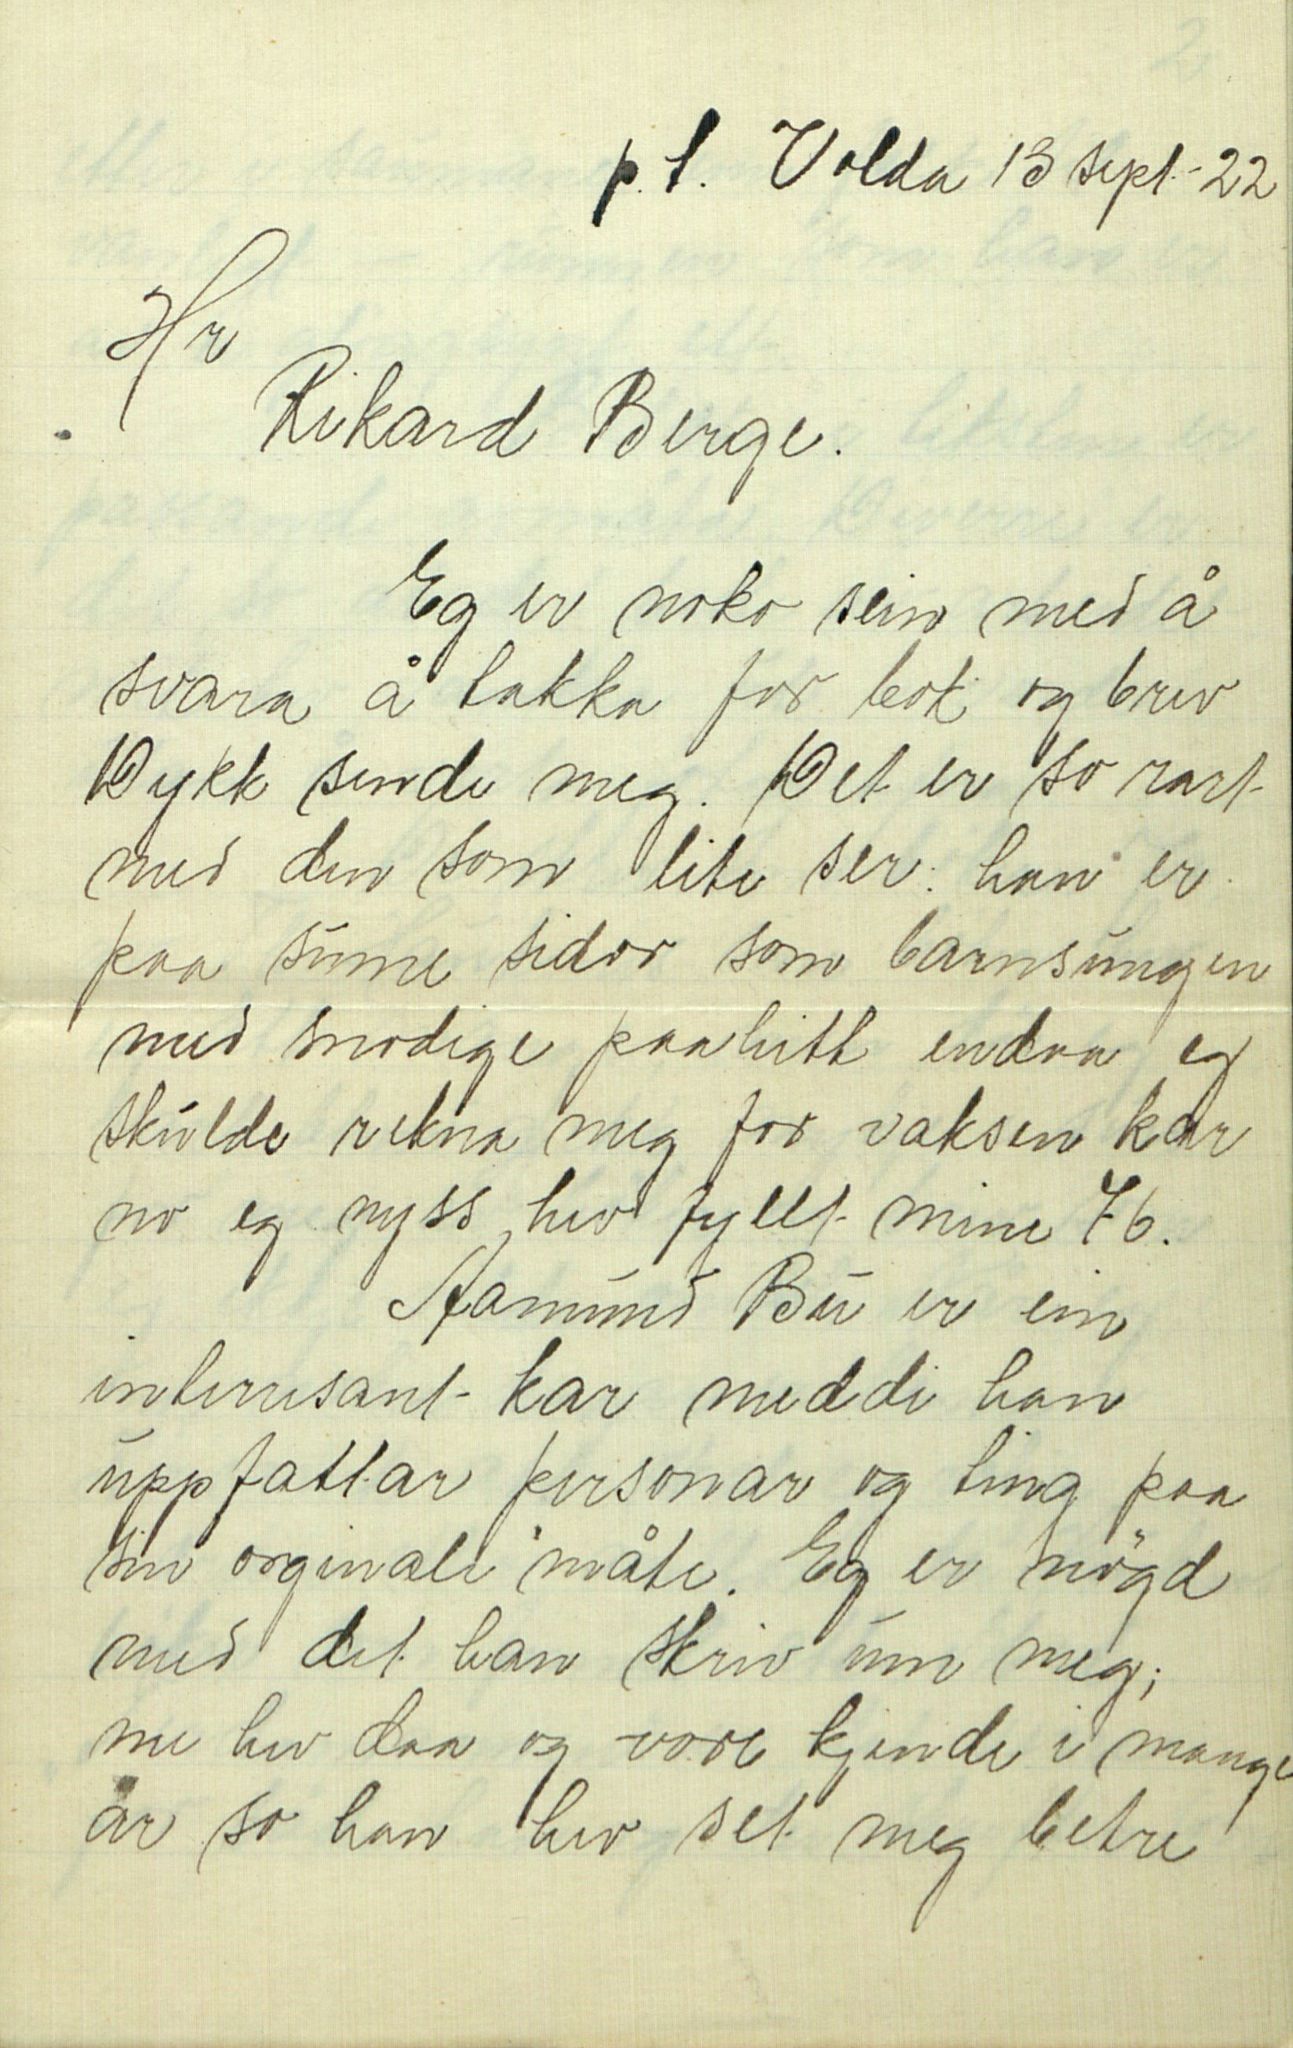 p.t. Volda 13 sept-22
Hr
Rikard Berge.
Eg er noko sein med å
svara å takka for bok og brev
Dykk sende meg. Det er so rart
med den som lite ser: han er
paa sume sidor som barnsungen
med snodige paahitt endaa eg
skulde rekna meg for vaksen kar
no eg nyss hev fyllt mine 76.
Aamund Bu er ein
interresant kar meddi han
uppfattar personar og ting paa
sin orginale måte. Eg er nögd
med det han skriv um meg;
me hev daa og vore kjende i mange
år so han hev set meg betre